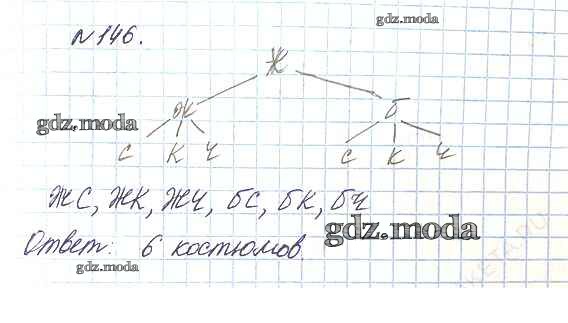 gdz.moda
№146.
Ж
Ж Б
gdz.moda
С К Ч С К Ч
ЖС, ЖК, ЖЧ, БС, БК, БЧ
gdz.moda
Ответ: 6 костюмов.
gdz.moda